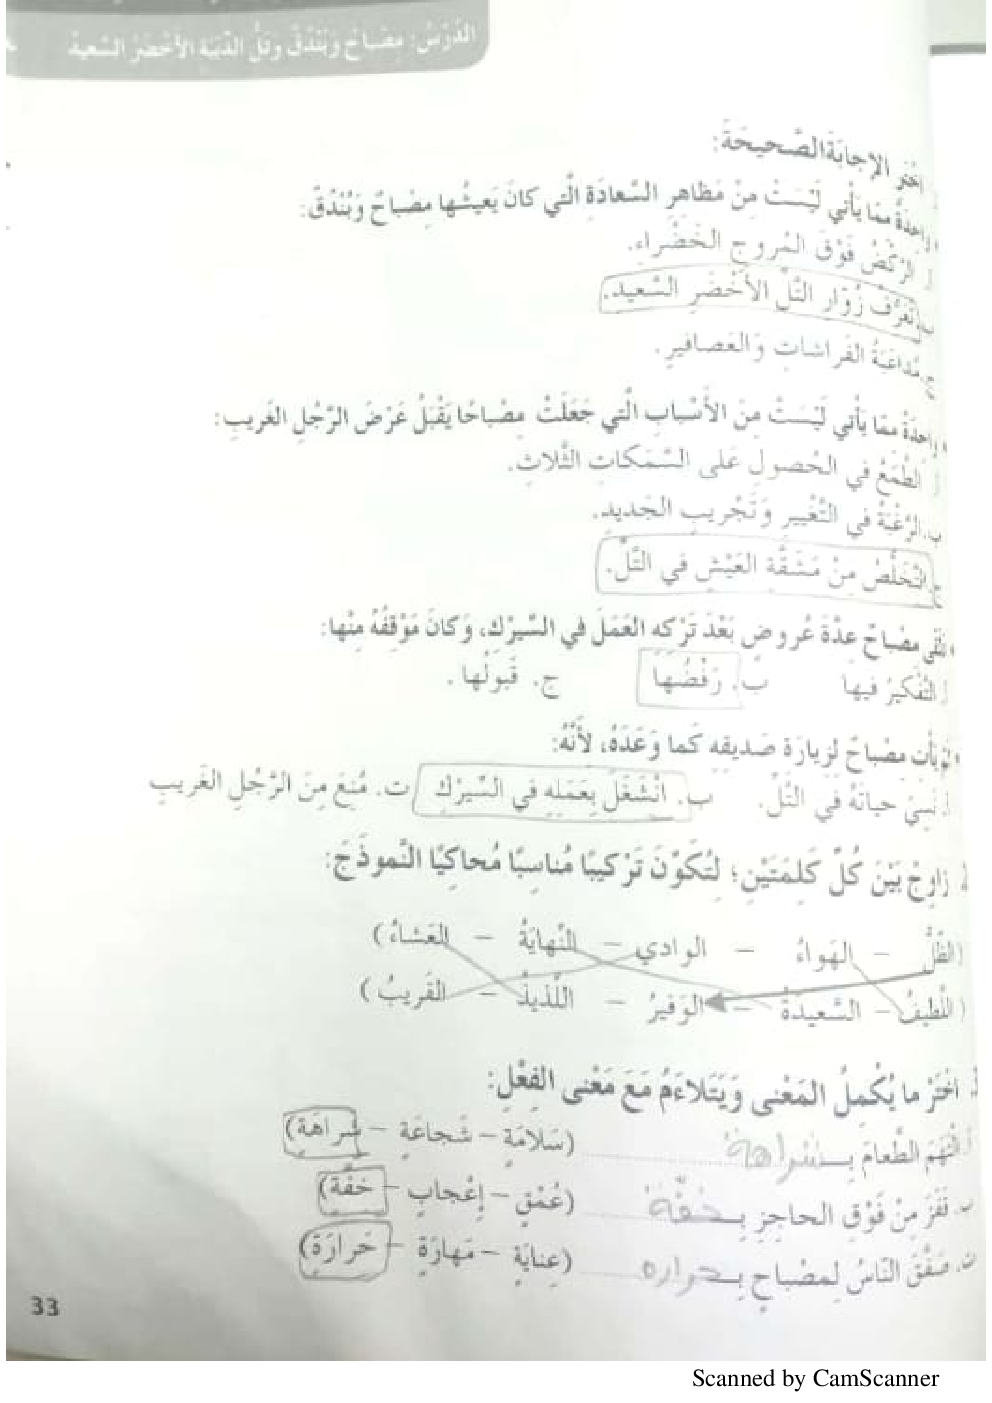 الدَّرْسُ: مِصْبَاحٌ وَبُنْدُقٌ وَتَلُّ الدِّبَبَةِ الأَخْضَرُ السَّعِيدُ
اخْتَرِ الإِجابَةَ الصَّحيحَةَ:
واحِدَةٌ مِمّا يَأْتي لَيْسَتْ مِنْ مَظاهِرِ السَّعادَةِ الَّتي كانَ يَعيشُها مِصْباحٌ وَبُنْدُقٌ:
أ. الرَّكْضُ فَوْقَ المُروجِ الخَضْراءِ.
ب. تَعَرُّفُ زُوّارِ التَّلِّ الأَخْضَرِ السَّعيدِ.
ج. مُداعَبَةُ الفَراشاتِ وَالعَصافيرِ.
واحِدَةٌ مِمّا يَأْتي لَيْسَتْ مِنَ الأَسْبابِ الَّتي جَعَلَتْ مِصْباحًا يَقْبَلُ عَرْضَ الرَّجُلِ الغَريبِ:
أ. الطَّمَعُ في الحُصولِ عَلى السَّمَكاتِ الثَّلاثِ.
ب. الرَّغْبَةُ في التَّغْييرِ وَتَجْريبِ الجَديدِ.
ج. التَّخَلُّصُ مِنْ مَشَقَّةِ العَيْشِ في التَّلِّ.
تَلَقّى مِصْباحٌ عِدَّةَ عُروضٍ بَعْدَ تَرْكِهِ العَمَلَ في السِّيرْكِ، وَكانَ مَوْقِفُهُ مِنْها:
أ. التَّفْكيرُ فيها ب. رَفْضُها ج. قَبولُها .
لَمْ يَأْتِ مِصْباحٌ لِزِيارَةِ صَديقِهِ كَما وَعَدَهُ، لِأَنَّهُ:
أ. نَسِيَ حياتَهُ في التَّلِّ. ب. انْشَغَلَ بِعَمَلِهِ في السِّيرْكِ ت. مُنِعَ مِنَ الرَّجُلِ الغَريبِ
زاوِجْ بَيْنَ كُلِّ كَلِمَتَيْنِ؛ لِتُكَوِّنَ تَرْكيبًا مُناسِبًا مُحاكِيًا النَّموذَجَ:
(الظِّلُّ – الهَواءُ – الوادي – النِّهايَةُ – العَشاءُ)
(اللَّطيفُ – السَّعيدَةُ – الوَفيرُ – اللَّذيذُ – القَريبُ)
اخْتَرْ ما يُكْمِلُ المَعْنى وَيَتَلاءَمُ مَعَ مَعْنى الفِعْلِ:
أ. الْتَهَمَ الطَّعامَ بِـ شراهة (سَلامَةٍ – شَجاعَةٍ – شَراهَةٍ)
ب. قَفَزَ مِنْ فَوْقِ الحاجِزِ بِـ خفّة (عُمْقٍ – إِعْجابٍ – خِفَّةٍ)
ت. صَفَّقَ النّاسُ لِمِصْباحٍ بِـ حراره (عِنايَةٍ – مَهارَةٍ – حَرارَةٍ)
33
Scanned by CamScanner